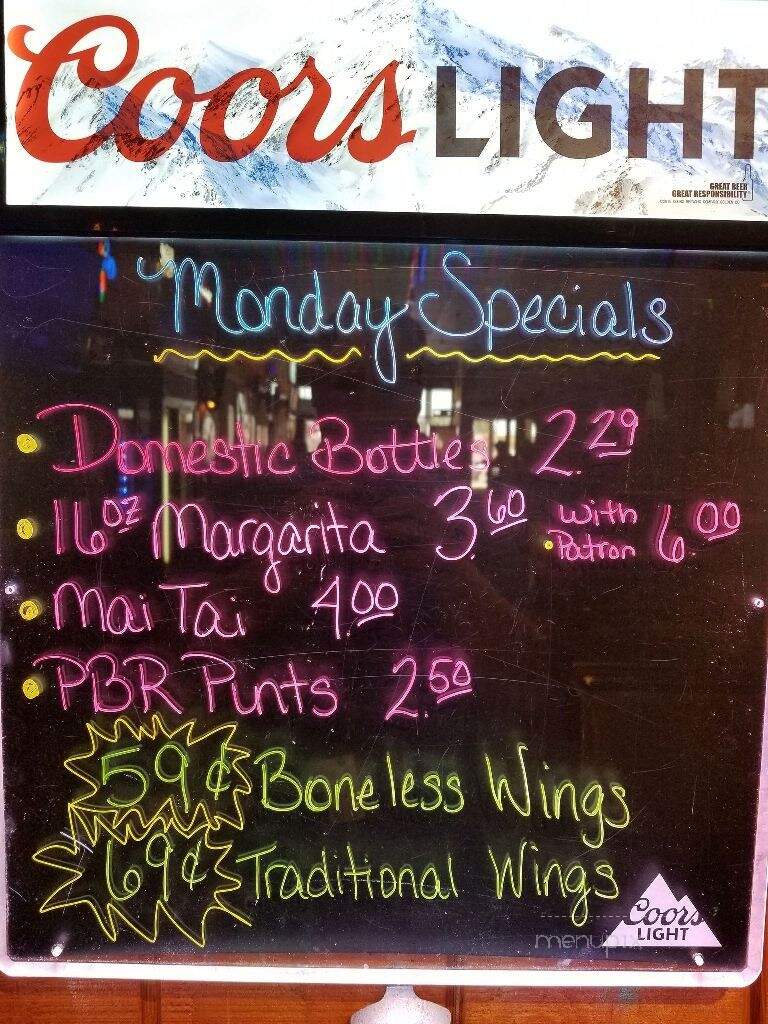 Coors LIGHT
GREAT BEER
GREAT RESPONSIBILITY
Monday Specials
Domestic Bottles 2.29
16oz Margarita 3.60 • with Patron 6.00
Mai Tai 4.00
PBR Punts 2.50
59¢ Boneless Wings
69¢ Traditional Wings
Coors
LIGHT